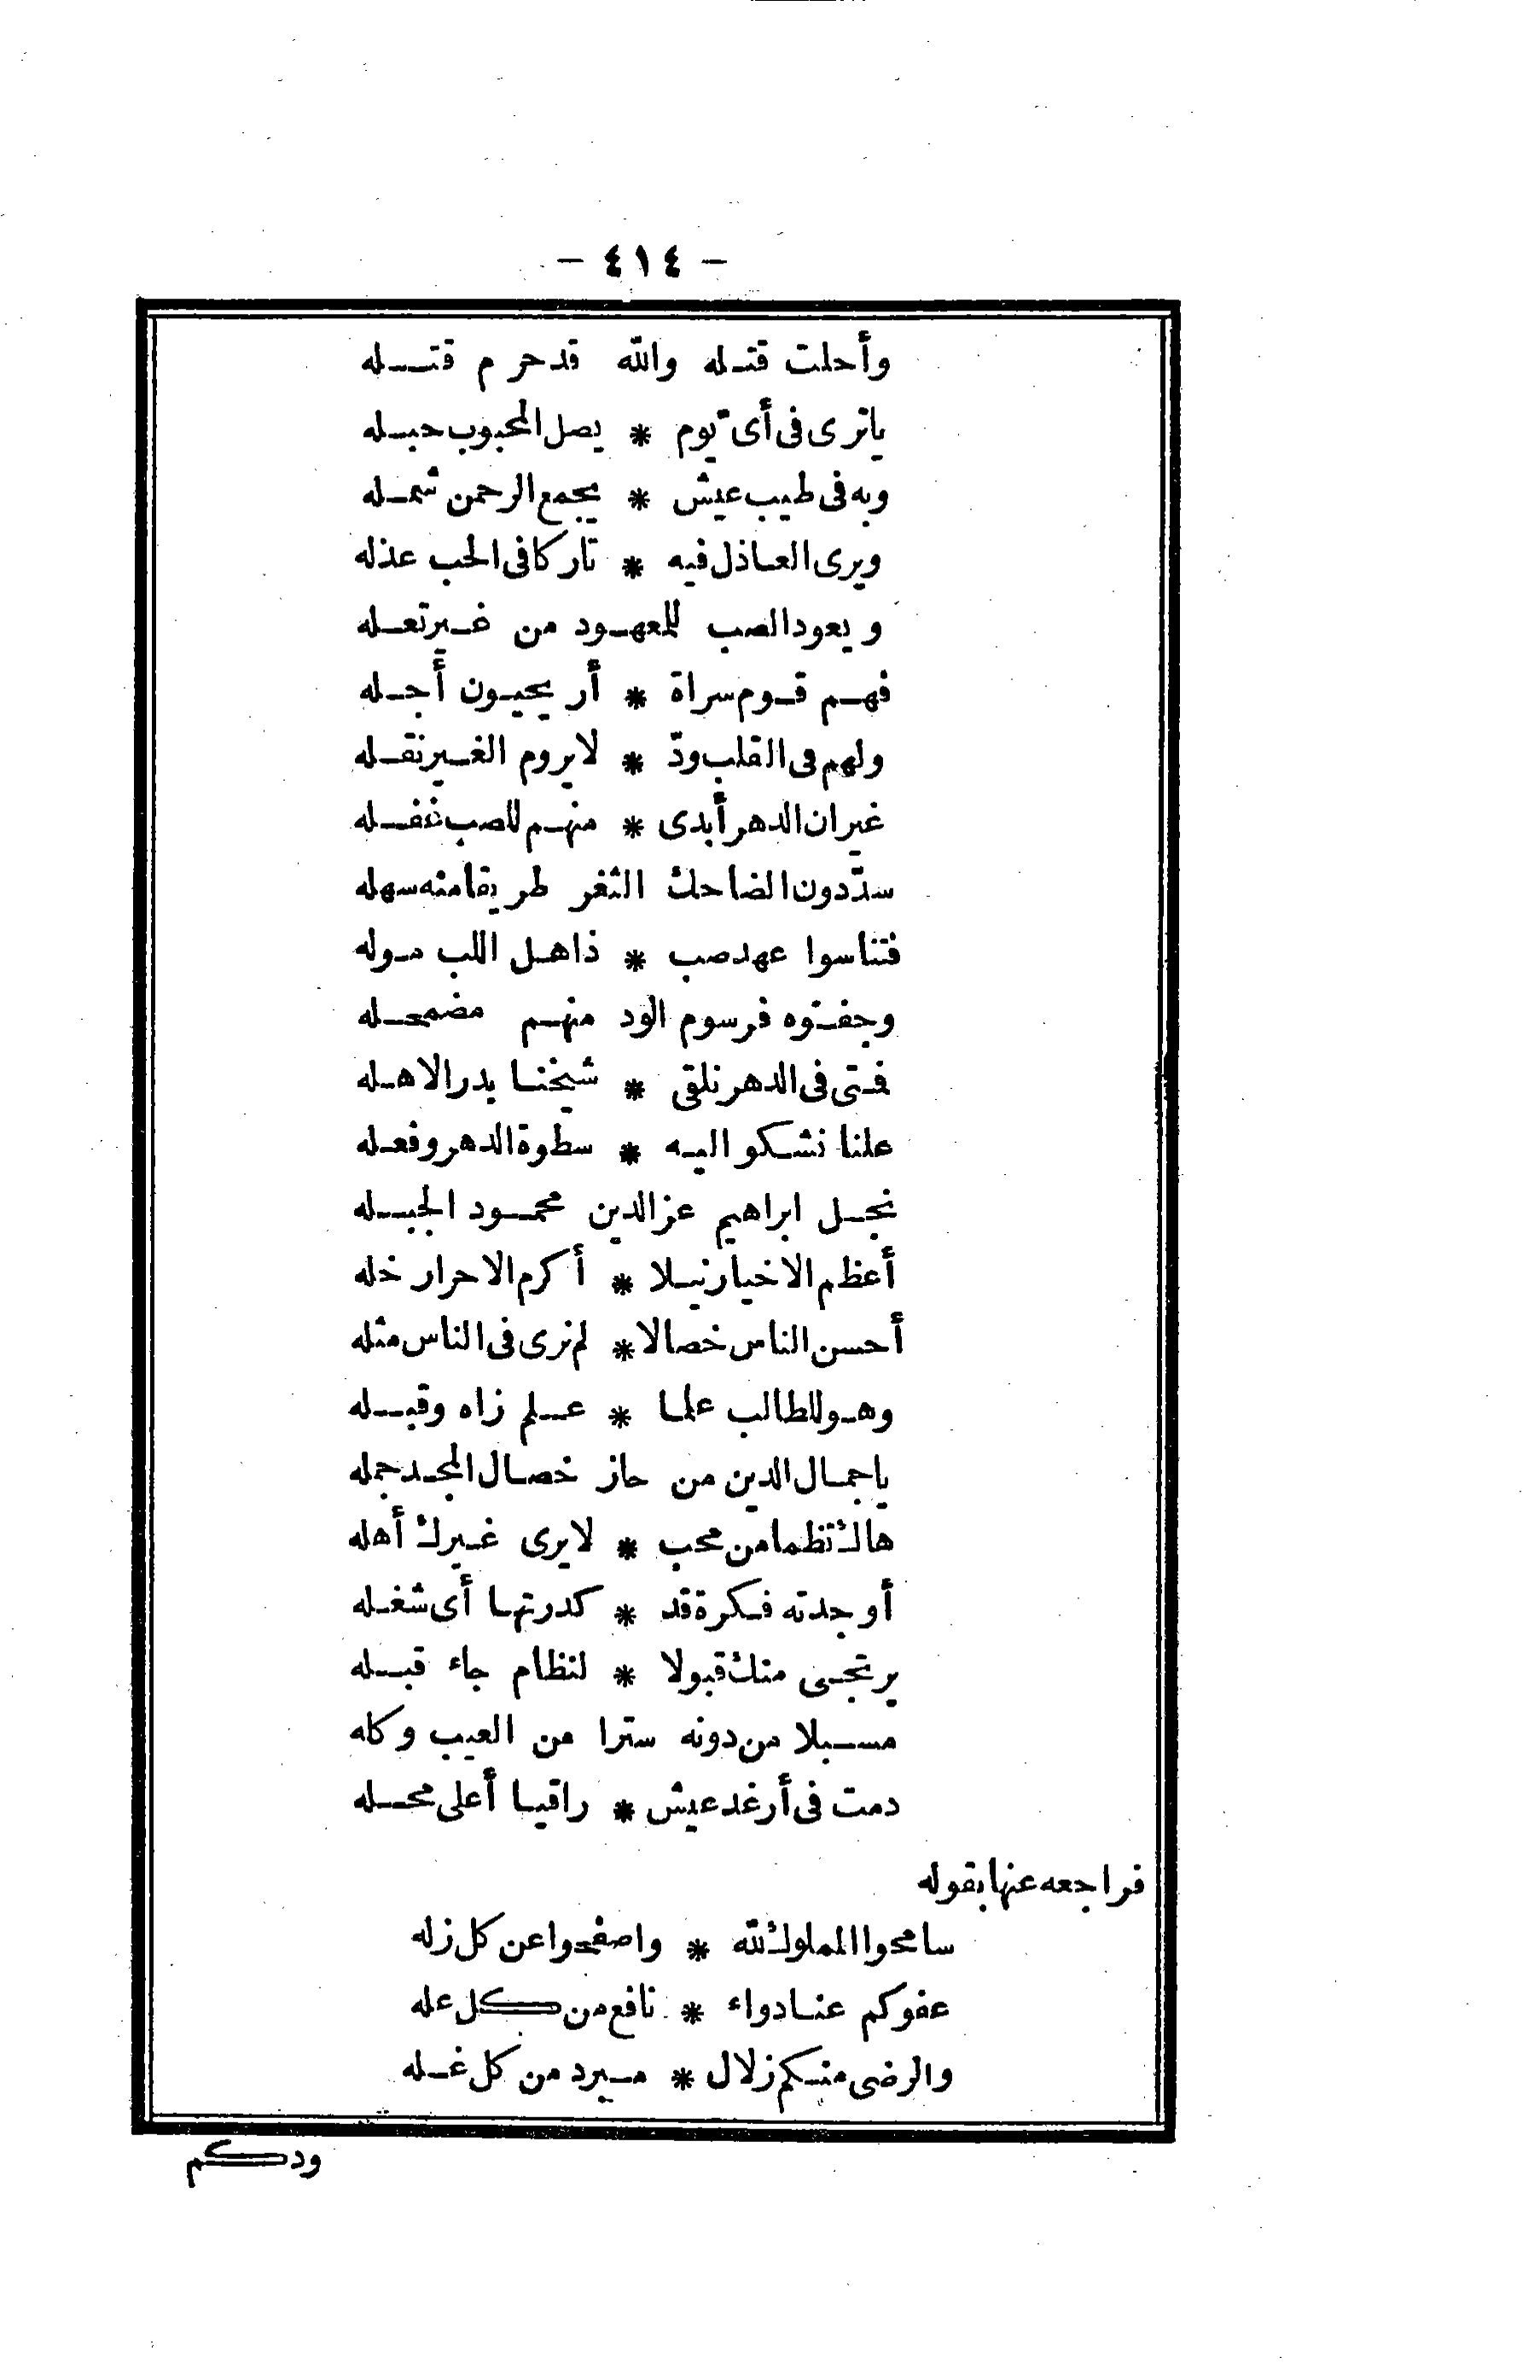 - ٤١٤ -
وأحلت قتله والله قد حرم قتله
ياترى فى أى يوم * يصل المحبوب حبله
وبه فى طيب عيش * يجمع الرحمن شمله
ويرى العاذل فيه * تاركا فى الحب عذله
ويعود الصب للمعهود من غير تعله
فهم قوم سراة * أريحيون أجله
ولهم فى القلب ودّ * لايروم الغير نقله
غير ان الدهر أبدى * منهم للصب غفله
سدّ دون الضاحك الثغر طريقا منه سهله
فتناسوا عهد صب * ذاهل اللب موله
وجفوه فرسوم الود منهم مضمحله
فمتى فى الدهر نلقى * شيخنا بدر الاهله
علنا نشكو اليه * سطوة الدهر وفعله
نجل ابراهيم عز الدين محمود الجبله
أعظم الاخيار نيلا * أكرم الاحرار خله
أحسن الناس خصالا * لم نرى فى الناس مثله
وهو للطالب علما * علم زاه وقبله
ياجمال الدين من حاز خصال المجد جمله
هاك نظما من محب * لايرى غيرك أهله
أوجدته فكرة قد * كدرتها أى شغله
يرتجى منك قبولا * لنظام جاء قبله
مسبلا من دونه سترا من العيب وكله
دمت فى أرغد عيش * راقيا أعلى محله
فراجعه عنها بقوله
سامحوا المملوك لله * واصفحوا عن كل زله
عفوكم عنا دواء * نافع من كل عله
والرضى منكم زلال * مبرد من كل غله
ودكم